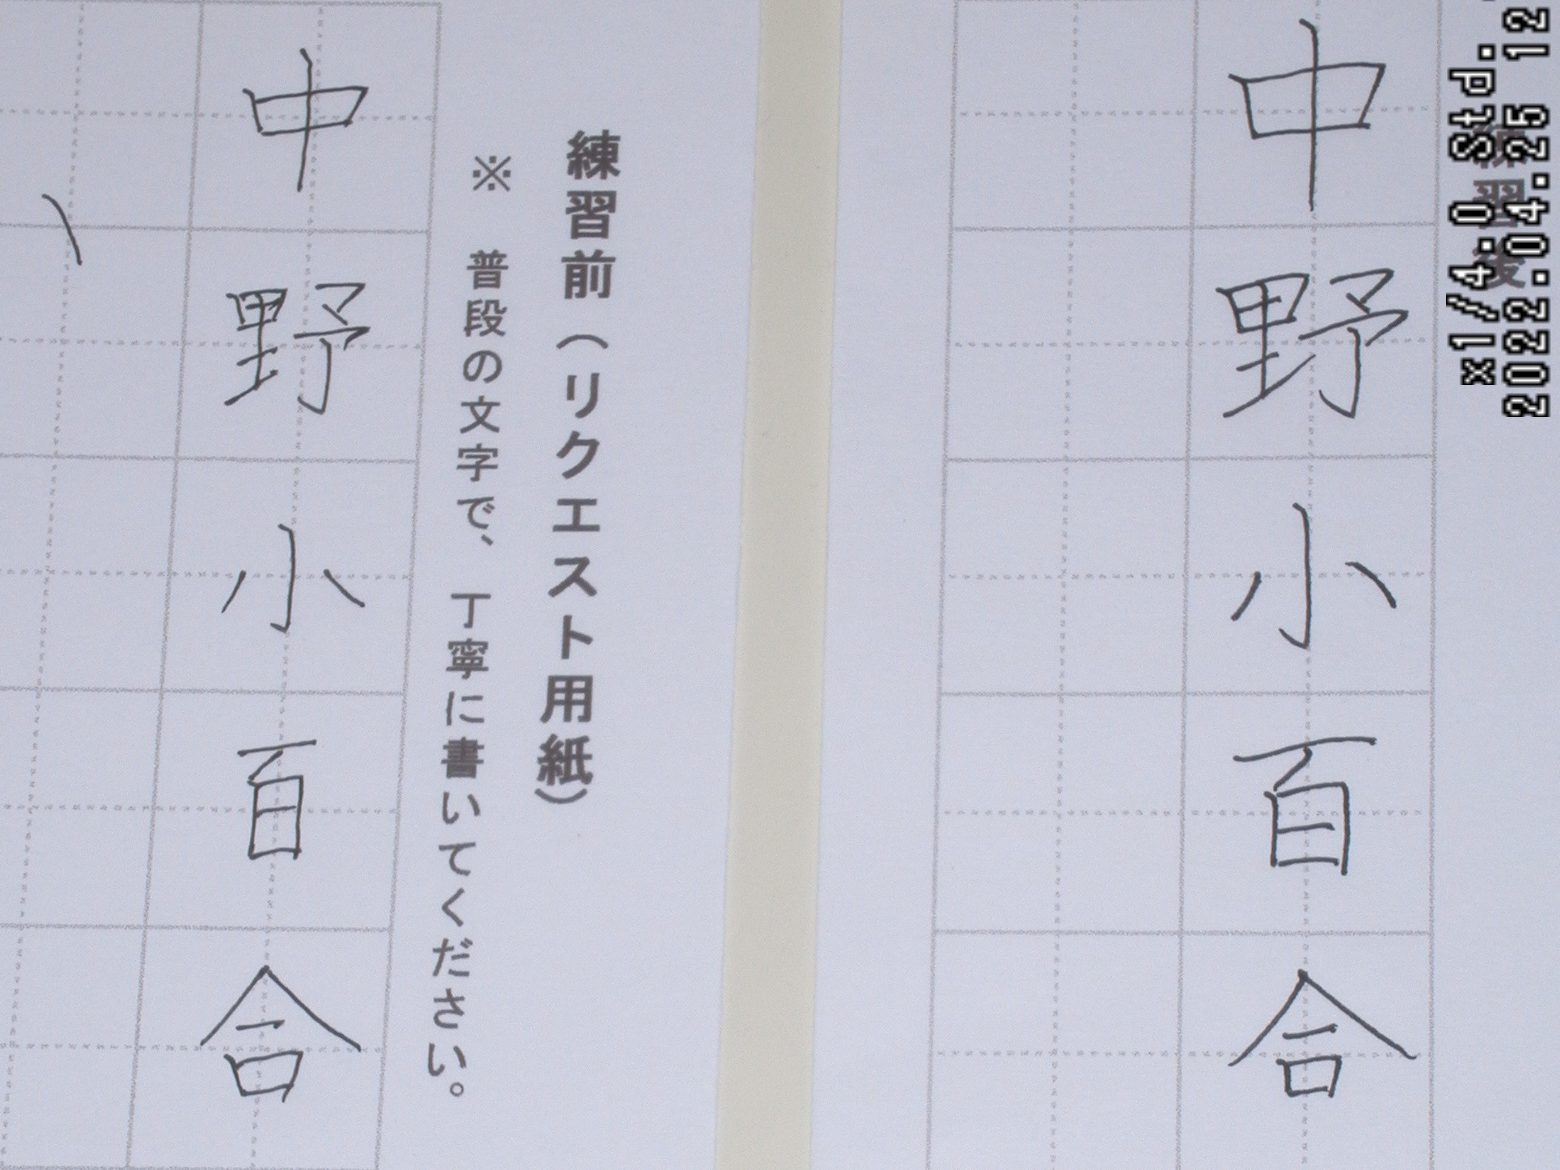 ×1/4.0 Std.
2022.04.25 12
練習後
中野小百合
練習前(リクエスト用紙)
※ 普段の文字で、丁寧に書いてください。
中野小百合